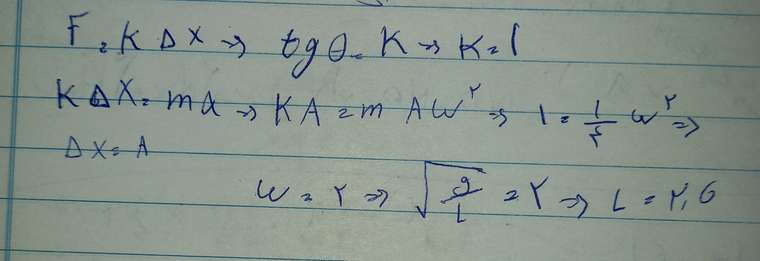 F = K Δ X ⇒ tgθ = K → K = 1
K Δ X = ma → KA = m A ω^۲ ⇒ 1 = 1/۴ ω^۲ ⇒
Δ X = A
ω = ۲ ⇒ √(g/L) = ۲ ⇒ L = ۲,۵